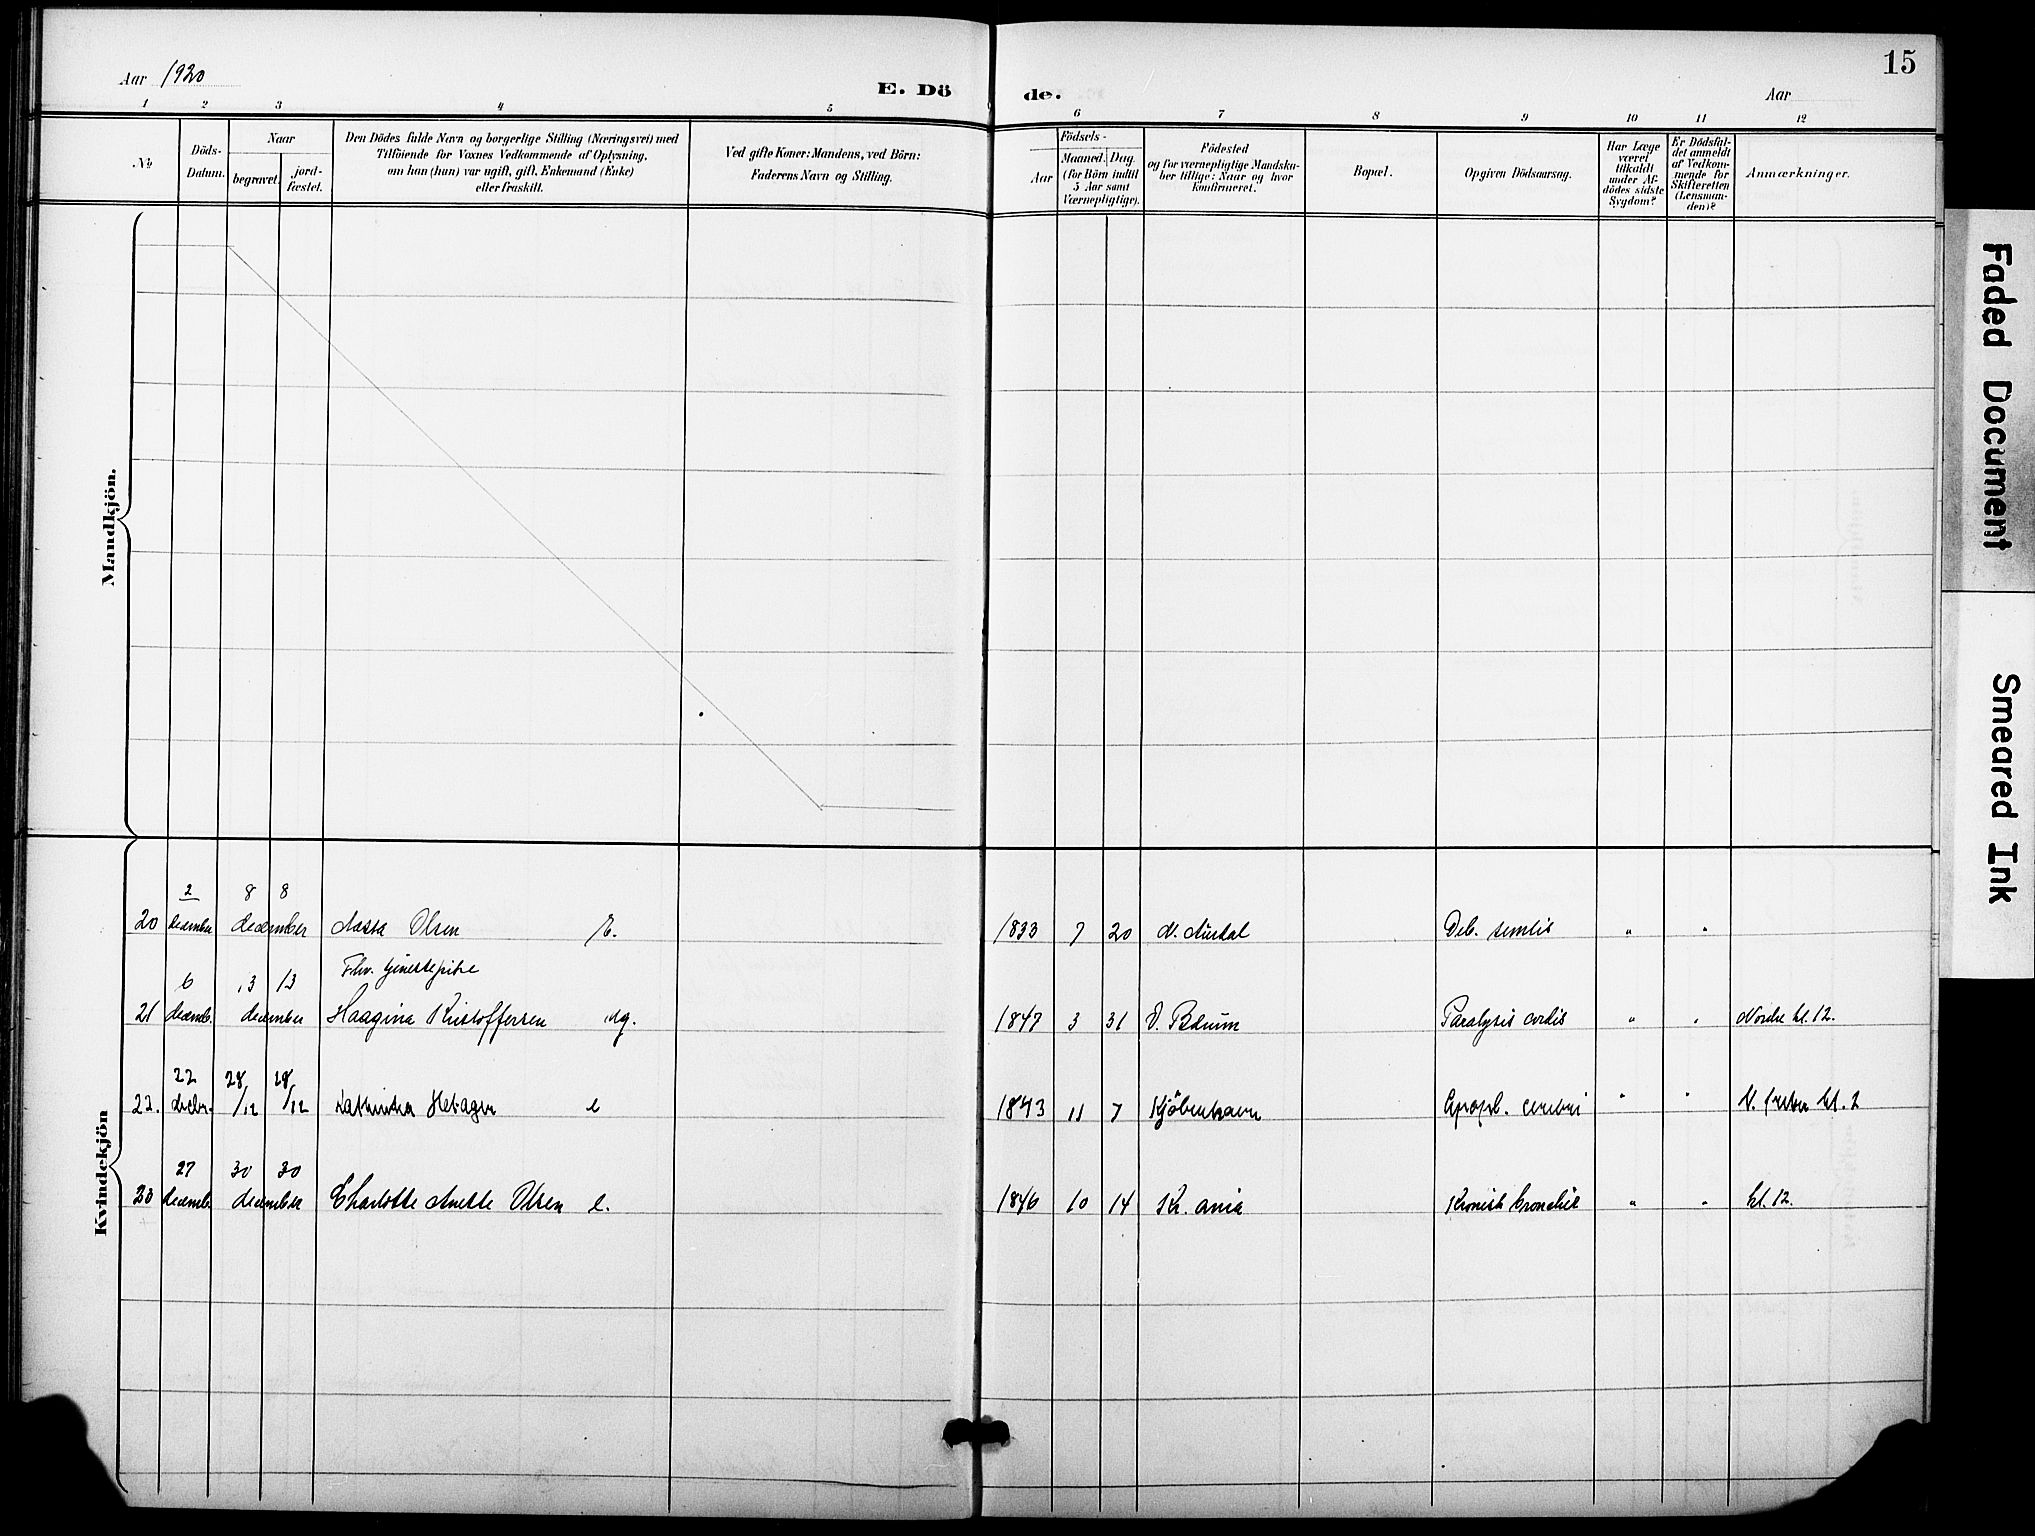 15
Aar 1920
E. Dö
de.
Aar
1 2 3 4 5
6 7 8 9 10 11 12
No
Döds-
Datum.
Naar
begravet.
jord-
fæstet.
Den Dödes fulde Navn og borgerlige Stilling (Næringsvei) med
Tilföiende for Voxnes Vedkommende af Oplysning,
om han (hun) var ugift, gift, Enkemand (Enke)
eller fraskilt.
Ved gifte Koner: Mandens, ved Börn:
Faderens Navn og Stilling.
Födsels-
Aar
Maaned. Dag.
(for Börn indtil
5 Aar samt
Værnepligtige).
Födested
og for værnepligtige Mandska-
ber tillige: Naar og hvor
konfirmeret.
Bopæl.
Opgiven Dödsaarsag.
Har Læge
været
tilkaldt
under Af-
dödes sidste
Sygdom?
Er Dödsfal-
det anmeldt
af Vedkom-
mende for
Skifteretten
(Lensman-
den)?
Anmærkninger.
Mandkjön.
Kvindekjön
2 8 8
20 december december Aassa Olsen E. 1833 7 20 N. Aurdal Deb. senilis " "
Fhv.
6 13 13
21 decemb. december Haagina Kristoffersen ug. 1847 3 31 V. Bærum Paralysis cordis " " Nordre kl. 12.
22 28 28
22. decbr. /12 /12 e 1843 11 7 Kjöbenhavn Apopl. cerebri " " kl. 2
27 30 30
23 decemb. december Charlotte Anette Olsen e. 1846 10 14 Kr. ania Kronisk bronchit " " kl. 12.
Faded Document
Smeared Ink